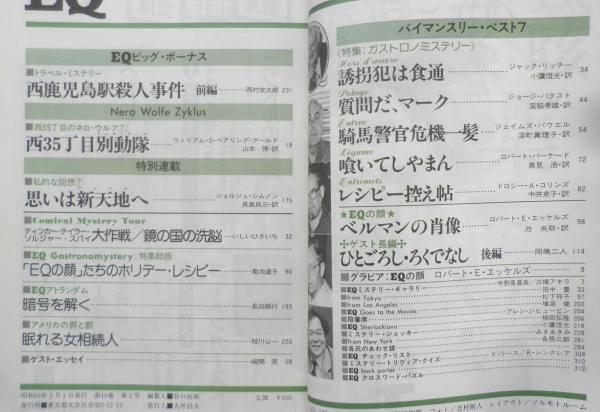 EQ
EQビッグ・ボーナス
■トラベル・ミステリー
西鹿児島駅殺人事件 前編……西村京太郎 231
Nero Wolfe Zyklus
■西35丁目のネロ・ウルフ⑦
西35丁目別動隊……ウィリアム・S・ベアリング-グールド 山本 博・訳 18
特別連載
■私的な回想⑦
思いは新天地へ……ジョルジュ・シムノン 長島良三・訳 175
■Comical Mystery Tour
ティンカー・テイラー・ソルジャー・スパイ大作戦／鏡の国の洗脳……いしいひさいち 32
■EQ Gastronomystery：特集総括
「EQの顔」たちのホリデー・レシピー……菊池道子 90
■EQアトランダム
暗号を解く……長田順行 193
■アメリカの罪と罰
眠れる女相続人……桂川公一 220
■ゲスト・エッセイ…… 28
昭和62年3月1日発行 第10巻 第2号 編集人■谷口尚規
発行所■東京都文京区音羽2-12-13 発行人■大坪昌夫
定価 ￥650
バイマンスリー・ベスト7
〈特集：ガストロノミステリー〉
Hors d'œuvre
誘拐犯は食通……ジャック・リッチー 小鷹信光・訳 34
Potage
質問だ、マーク……ジョージ・バクスト 宮脇孝雄・訳 44
Entrée
騎馬警官危機一髪……ジェイムズ・パウエル 深町眞理子・訳 54
Légume
喰いてしやまん……ロバート・バーナード 高見 浩・訳 72
Entremets
レシピー控え帖……ドロシー・A・コリンズ 中井京子・訳 82
★EQの顔★
ベルマンの肖像……ロバート・E・エッケルズ 池 央耿・訳 98
✣ゲスト長編✣
ひとごろし・ろくでなし 後編……岡嶋二人 114
■グラビア：EQの顔 ロバート・E・エッケルズ 9
■EQミステリー・ギャラリー
■from Tokyo
■from Los Angeles
■EQ Goes to the Movies
■陪審席
■EQ Sherlockiana
■ミステリー・ジョッキー
■from New York
■各氏のあわせ鏡
■EQ チェック・リスト
■ミステリー・トリヴィア・クイズ
■EQ back parlor
■EQ クロスワード・パズル
レイアウト／ツルモトルーム